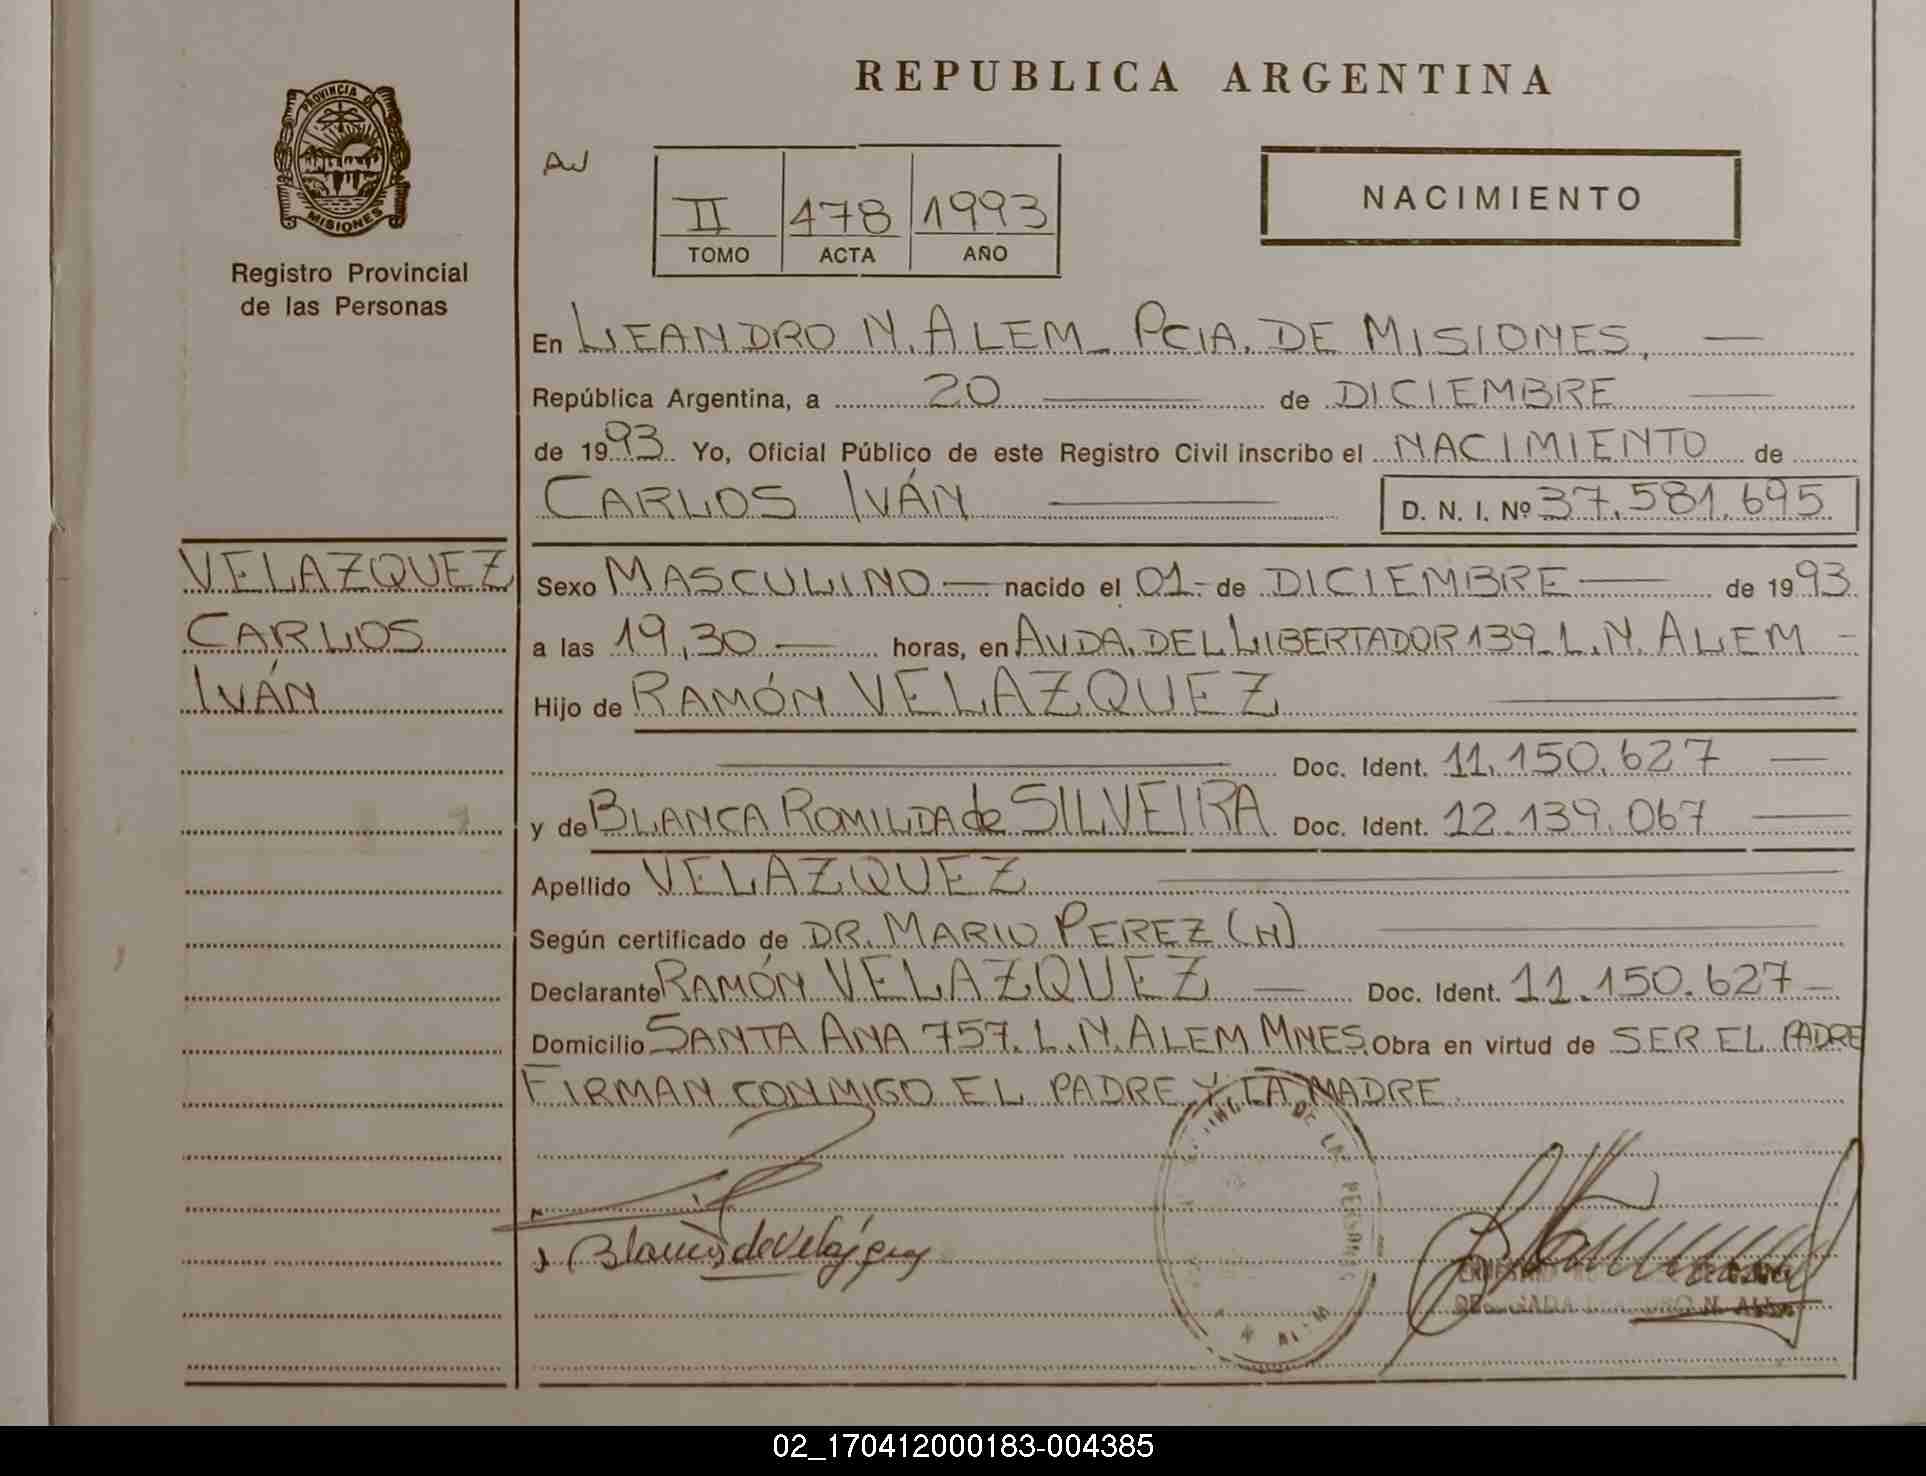 REPUBLICA ARGENTINA
PROVINCIA DE
MISIONES
Registro Provincial
de las Personas
II 478 1993
TOMO ACTA AÑO
NACIMIENTO
En LEANDRO N. ALEM_ PCIA. DE MISIONES, —
República Argentina, a 20 — de DICIEMBRE —
de 1993. Yo, Oficial Público de este Registro Civil inscribo el NACIMIENTO de
CARLOS IVÁN — D. N. I. Nº 37.581.695
VELAZQUEZ
CARLOS
IVÁN
Sexo MASCULINO — nacido el 01- de DICIEMBRE — de 1993
a las 19,30 — horas, en AVDA. DEL LIBERTADOR 139_ L.N. ALEM -
Hijo de RAMÓN VELAZQUEZ —
— Doc. Ident. 11.150.627 —
y de BLANCA ROMILDA de SILVEIRA Doc. Ident. 12.139.067 —
Apellido VELAZQUEZ —
Según certificado de DR. MARIO PEREZ (H) —
Declarante RAMÓN VELAZQUEZ — Doc. Ident. 11.150.627 —
Domicilio SANTA ANA 757. L.N. ALEM MNES. Obra en virtud de SER EL PADRE
FIRMAN CONMIGO EL PADRE Y LA MADRE.
DE LAS PERSONAS
Blanca de Velazquez
N. ALEM
02_170412000183-004385